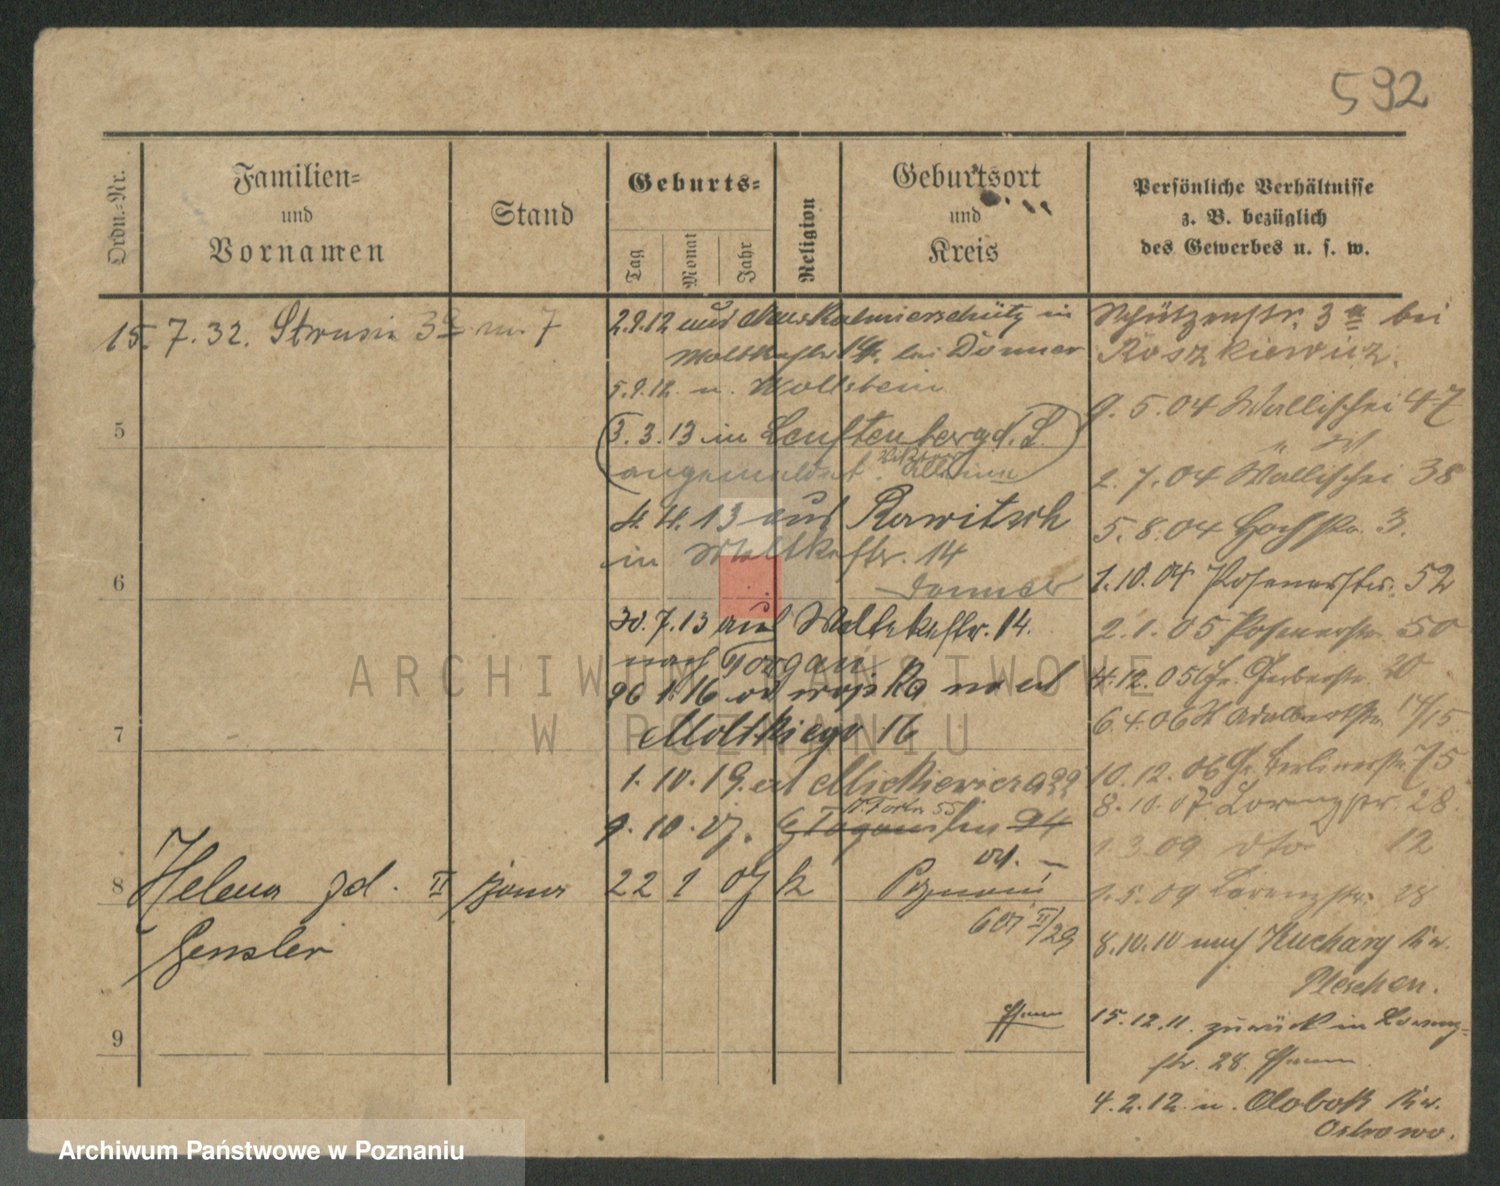 592
Ordn.-Nr.
Familien-
und
Vornamen
Stand
Geburts-
Tag
Monat
Jahr
Religion
Geburtsort
und
Kreis
Persönliche Verhältnisse
z. B. bezüglich
des Gewerbes u. s. w.
15. 7. 32. Strusia 3a m. 7
5
6
7
8
9
2.9.12 aus
14. bei Donner
5.9.12 n. Wollstein
3. 3. 13 in
angemeldet.
4. 4. 13 aus Rawitsch
in Moltkestr. 14
Donner
30. 7. 13 aus Moltkestr. 14.
nach Torgau
26 1. 16 od wojska na ul
Moltkiego 16
1. 10. 19. ul Mickiewicza
9. 10. 27.
Helena zd. II żona 22 1 07 k Poznań
Gensler
II/29
Schützenstr. 3a bei
Roszkiewicz.
9. 5. 04 Wallischei 47
2. 7. 04 Wallischei 38
5. 8. 04 3.
1. 10. 04 Posenerstr. 52
2. 1. 05 Posenerstr. 50
4. 12. 05 Gr. Gerberstr. 20
6. 4. 06 Adalbertstr. 14/15
10. 12. 06 Gr. Berlinerstr. 75
8. 10. 07 Lorenzstr. 28.
1. 3. 09 dto 12
1. 5. 09 Lorenzstr. 28
8. 10. 10 nach Kuchary Kr.
Pleschen.
15. 12. 11. zurück in Lorenz-
str. 28.
4. 2. 12. n. Olobok Kr.
Ostrowo.
ARCHIWUM PAŃSTWOWE
W POZNANIU
Archiwum Państwowe w Poznaniu